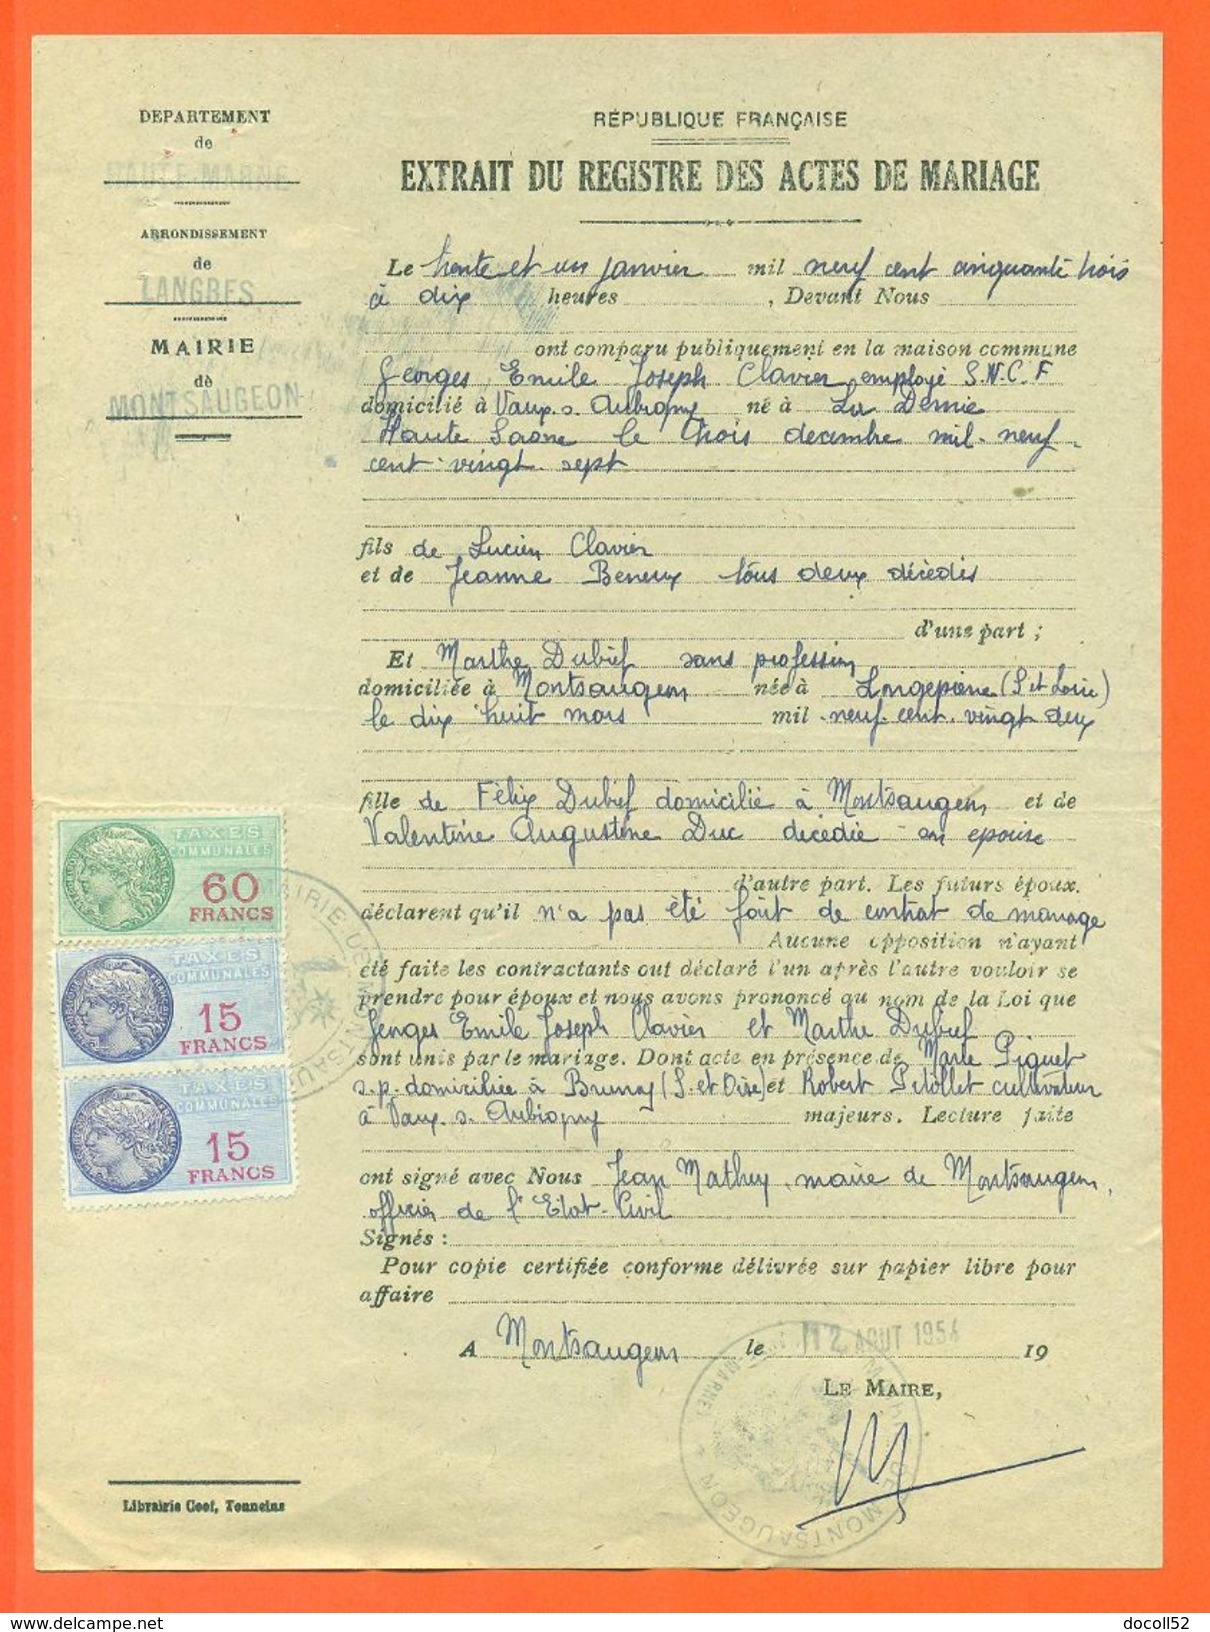 DEPARTEMENT
de
HAUTE-MARNE
ARRONDISSEMENT
de
LANGRES
MAIRIE
de
MONTSAUGEON
RÉPUBLIQUE FRANÇAISE
EXTRAIT DU REGISTRE DES ACTES DE MARIAGE
Le trente et un janvier mil neuf cent cinquante trois
à dix heures , Devant Nous
ont comparu publiquement en la maison commune
Georges Emile Joseph Clavier employé S.N.C.F
domicilié à Vaux. s. Aubigny né à La Demie
Haute Saone le trois decembre mil. neuf
cent. vingt. sept
fils de Lucien Clavier
et de Jeanne Beneux tous deux décédés
d'une part ;
Et Marthe Dubief sans profession
domiciliée à Montsaugeon née à Longepierre (S et Loire)
le dix huit mars mil neuf. cent. vingt deux
fille de Félix Dubief domicilié à Montsaugeon et de
Valentine Augustine Duc décédée - son epouse
d'autre part. Les futurs époux.
déclarent qu'il n'a pas été fait de contrat de mariage
Aucune opposition n'ayant
été faite les contractants ont déclaré l'un après l'autre vouloir se
prendre pour époux et nous avons prononcé au nom de la Loi que
Georges Emile Joseph Clavier et Marthe Dubief
sont unis par le mariage. Dont acte en présence de Marie Piguet
s.p. domiciliée à Brunoy (S. et Oise) et Robert Pitollet cultivateur
à Vaux. s. Aubigny majeurs. Lecture faite
ont signé avec Nous Jean Mathey, maire de Montsaugeon,
officier de l'Etat-Civil
Signés :
Pour copie certifiée conforme délivrée sur papier libre pour
affaire
A Montsaugeon le 12 AOUT 1954 19
LE MAIRE,
MAIRIE DE MONTSAUGEON
TAXES
COMMUNALES
60
FRANCS
TAXES
COMMUNALES
15
FRANCS
TAXES
COMMUNALES
15
FRANCS
MAIRIE DE MONTSAU
Librairie Coof, Tonneins
docoll52